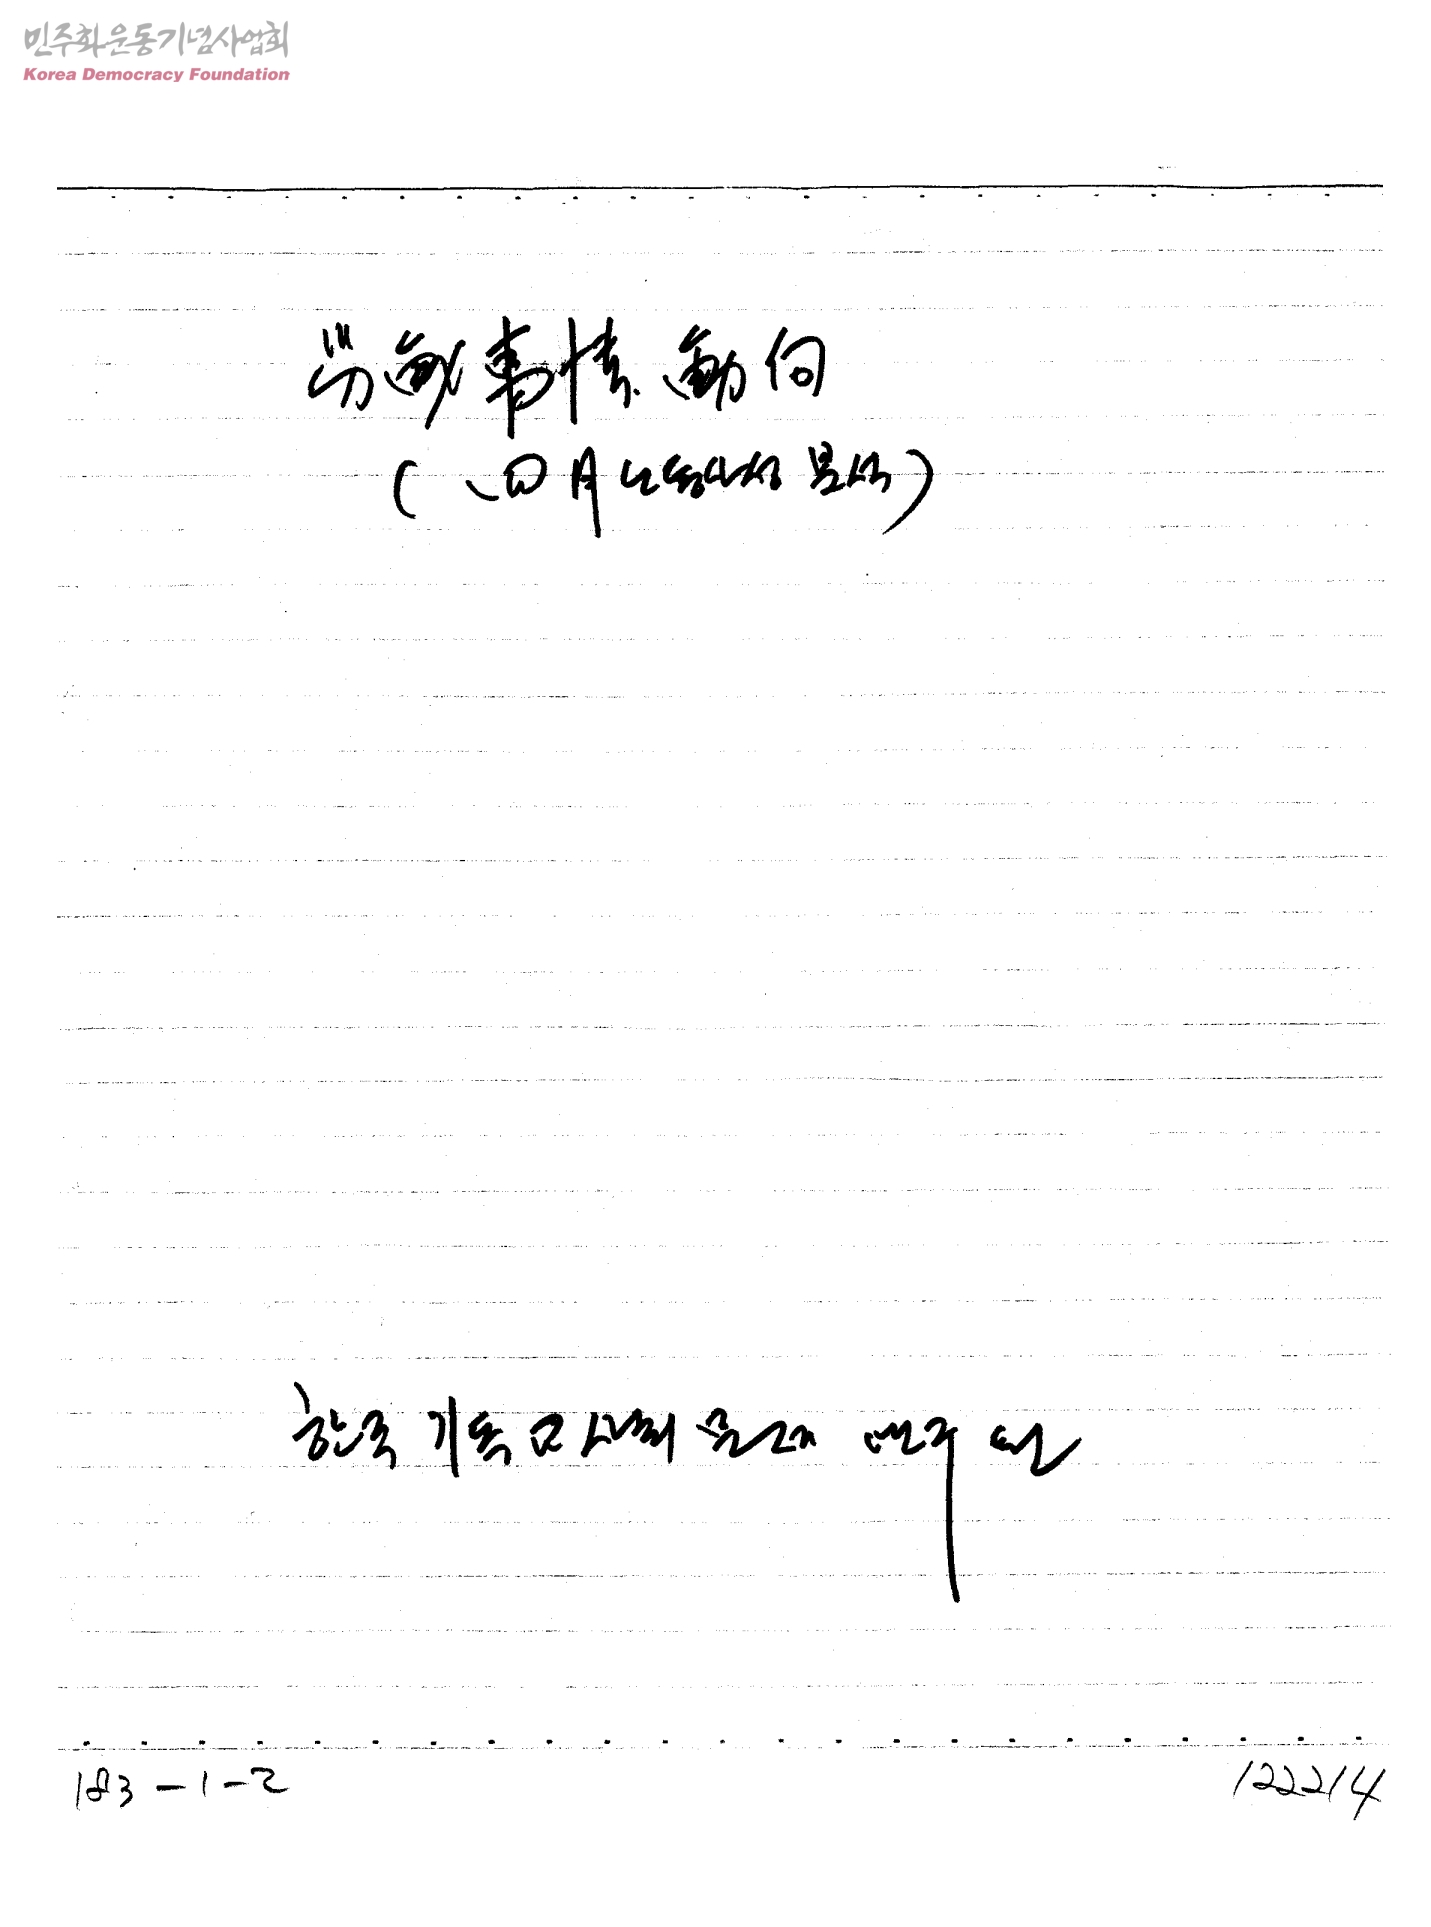 민주화운동기념사업회
Korea Democracy Foundation
労働事情動向
(四月 노동사정 분석)
한국 기독교 사회 문제 연구원
183-1-2
122214